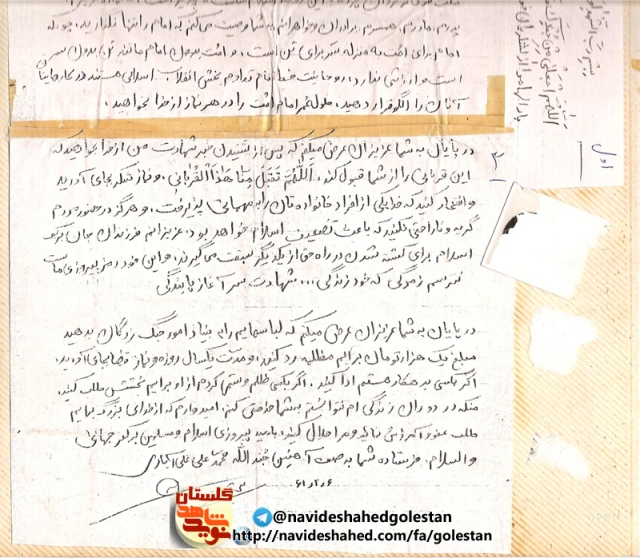 پدرم، مادرم، همسرم برادران و خواهرانم به شما وصیت می‌کنم که امام را تنها نگذارید، چون که
امام برای امت به منزله سر برای تن است، و امت بدون امام مانند تن بدون سر
است و ارزشی ندارد، روحانیت ضمناً مقام تداوم بخش انقلاب اسلامی هستند در کارهایتان
آنان را الگو قرار دهید، طول عمر امام امت را در هر نماز از خدا بخواهید.
در پایان به شما عزیزان عرض میکنم که پس از شنیدن خبر شهادت من از خدا بخواهید که
این قربانی را از شما قبول کند. اَللّهُمَّ تَقَبَّل مِنّا هذَا القُربانی، و نماز شکر بجای آورید
و افتخار کنید که خدا یکی از افراد خانواده‌تان را به مهمانی پذیرفت، و هرگز در حضور مردم
گریه و ناراحتی نکنید که باعث تضعیف اسلام خواهد بود، عزیزانم فرزندان جان بر کف
اسلام برای کشته شدن در راه حق از یکدیگر سبقت می‌گیرند، و این خود رمز پیروزی ماست
نترسم ز مرگی که خود زندگی ... شهادت سرآغاز پایندگی
در پایان به شما عزیزان عرض میکنم که لباسهایم را به بنیاد امور جنگ زدگان بدهید
مبلغ یک هزار تومان برایم مظالمه رد کنید، و مدت یکسال روزه و نماز قضا بجای آورید،
اگر بکسی بدهکار هستم ادا کنید. اگر بکسی ظلم و ستم کردم از او برایم بخشش طلب کنید.
منکه در دوران زندگی ام نتوانستم به شما خدمتی کنم، امیدوارم که از خدای بزرگ برایم
طلب عفو و آمرزش نمائید و مرا حلال کنید، بامید پیروزی اسلام و مسلمین بر کفر جهانی
والسلام. فرستاده شما به صف آهنین جند الله محمد علی علی اکباری
اول
۳
گلستان
نوید شاهد
@navideshahedgolestan
http://navideshahed.com/fa/golestan